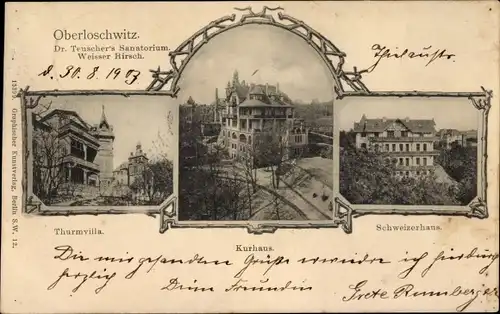 Oberloschwitz.
Dr. Teuscher's Sanatorium,
Weisser Hirsch.
d. 30. 8. 1903
15195. Graphischer Kunstverlag, Berlin S.W. 12.
Thurmvilla.
Kurhaus.
Schweizerhaus.
Die mir gesandten Grüße erwidere ich hierdurch
herzlich Deine Freundin Grete